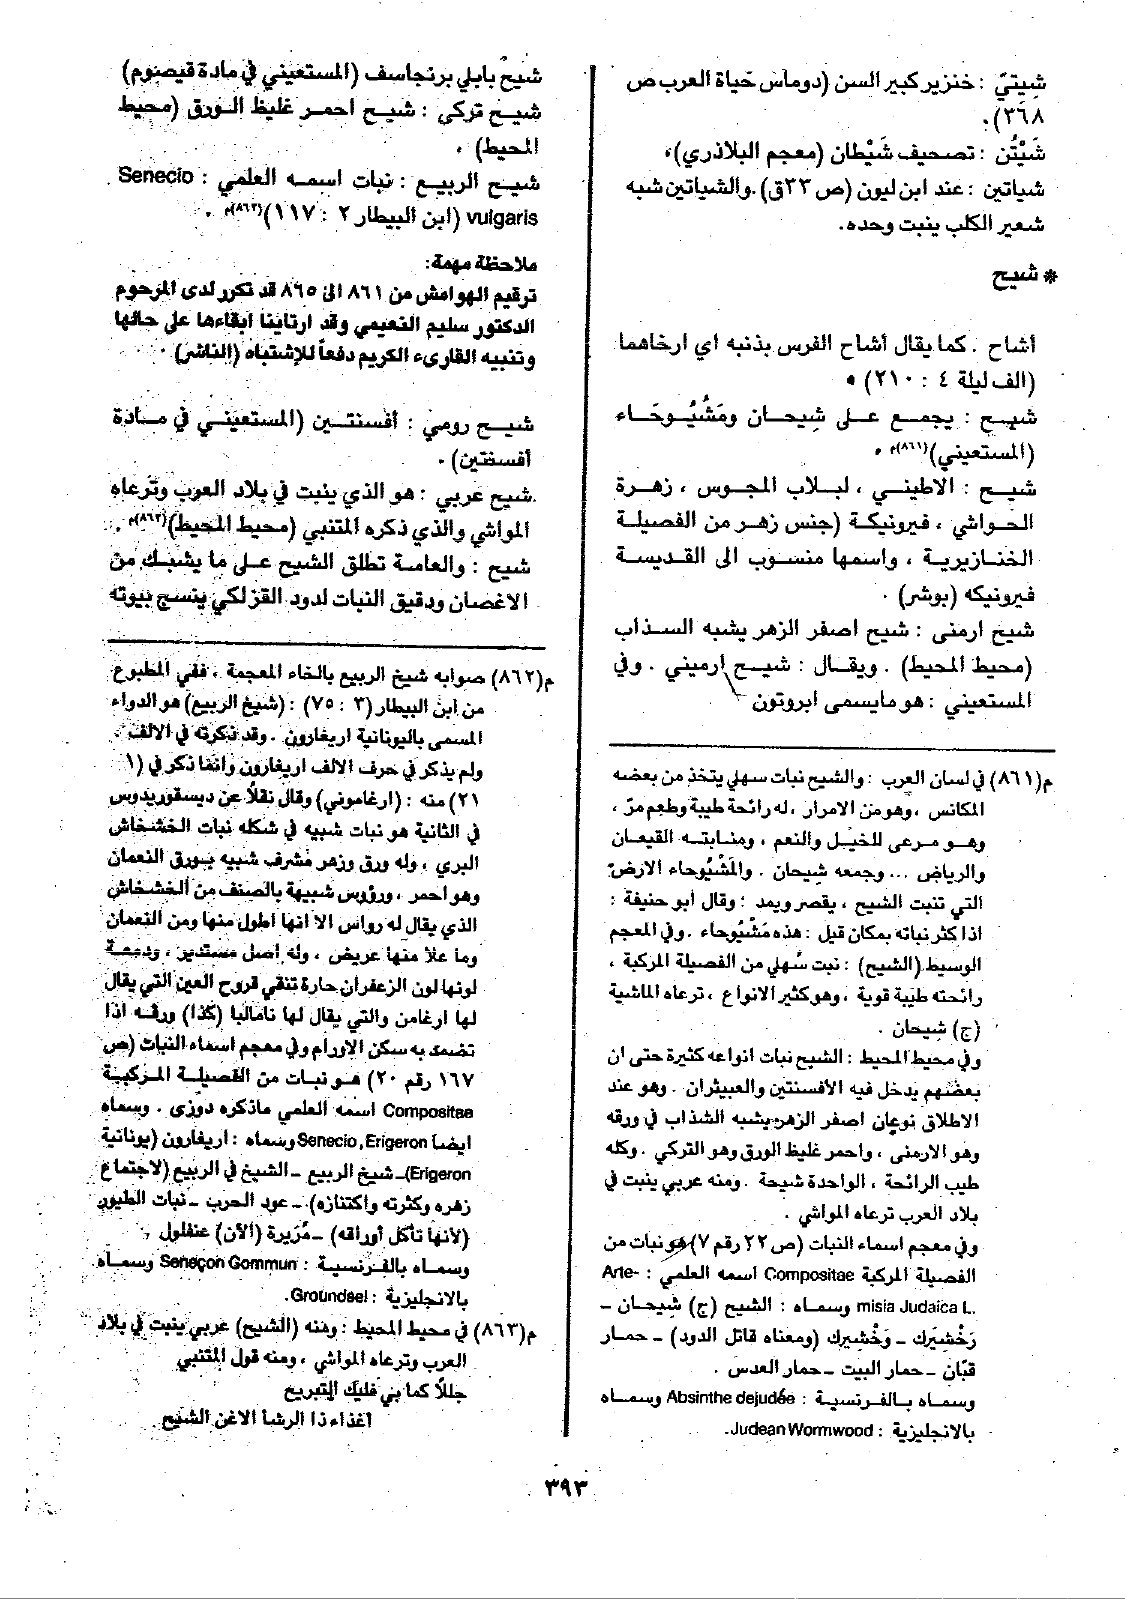 شِيتيّ : خنزير كبير السن (دوماس حياة العرب ص
٣٦٨).
شَيْتُن : تصحيف شَيْطان (معجم البلاذري).
شياتين : عند ابن ليون (ص ٣٣ق) .والشياتين شبه
شعير الكلب ينبت وحده.
* شيح
أشاح . كما يقال أشاح الفرس بذنبه اي ارخاهما
(الف ليلة ٤ : ٢١٠) .
شيح : يجمع على شِيحان ومَشْيُوحَاء
(المستعيني)(٨٦١)م .
شيح : الاطيني ، لبلاب المجوس ، زهرة
الحواشي ، فيرونيكة (جنس زهر من الفصيلة
الخنازيرية ، واسمها منسوب الى القديسة
فيرونيكه (بوشر) .
شيح ارمنى : شيح اصفر الزهر يشبه السذاب
(محيط المحيط) . ويقال : شيح ارميني . وفي
المستعيني : هو مايسمى ابروتون
م(٨٦١) في لسان العرب : والشيح نبات سهلي يتخذ من بعضه
المكانس ، وهو من الامرار ، له رائحة طيبة وطعم مرّ ،
وهو مرعى للخيل والنعم ، ومنابته القيعان
والرياض ... وجمعه شيحان . والمَشْيُوحاء الارض
التي تنبت الشيح ، يقصر ويمد : وقال أبو حنيفة :
اذا كثر نباته بمكان قيل : هذه مَشْيُوحاء . وفي المعجم
الوسيط (الشيح) : نبت سُهلي من الفصيلة المركبة ،
رائحته طيبة قوية ، وهو كثير الانواع ، ترعاه الماشية
(ج) شيحان .
وفي محيط المحيط : الشيح نبات انواعه كثيرة حتى ان
بعضهم يدخل فيه الأفسنتين والعبيثران . وهو عند
الاطلاق نوعان اصفر الزهر يشبه الشذاب في ورقه
وهو الارمنى ، واحمر غليظ الورق وهو التركي . وكله
طيب الرائحة ، الواحدة شيحة . ومنه عربي ينبت في
بلاد العرب ترعاه المواشي .
وفي معجم اسماء النبات (ص ٢٢ رقم ٧) هو نبات من
الفصيلة المركبة Compositae اسمه العلمي : Arte-
misia Judaica L. وسماه : الشيح (ج) شيحان –
رَخْشيَرك – وَخْشيرك (ومعناه قاتل الدود) – حمار
قبّان – حمار البيت – حمار العدس .
وسماه بالفرنسية : Absinthe dejudée وسماه
بالانجليزية : Judean Wormwood.
شيح بابلي برنجاسف (المستعيني في مادة قيصنوم)
شيح تركي : شيح احمر غليظ الورق (محيط
المحيط) .
شيح الربيع : نبات اسمه العلمي : Senecio
vulgaris (ابن البيطار ٢ : ١١٧)(٨٦٢)م .
ملاحظة مهمة:
ترقيم الهوامش من ٨٦١ الى ٨٦٥ قد تكرر لدى المرحوم
الدكتور سليم النعيمي وقد ارتاينا ابقاءها على حالها
وتنبيه القارىء الكريم دفعاً للإشتباه (الناشر)
شيح رومي : أفسنتين (المستعيني في مادة
أفسنتين) .
شيح عربي : هو الذي ينبت في بلاد العرب وترعاه
المواشي والذي ذكره المتنبي (محيط المحيط)(٨٦٣)م .
شيح : والعامة تطلق الشيح على ما يشبك من
الاغصان ودقيق النبات لدود القز لكي ينسج بيوته
م(٨٦٢) صوابه شيخ الربيع بالخاء المعجمة ، ففي المطبوع
من ابن البيطار (٣ : ٧٥) : (شيخ الربيع) هو الدواء
المسمى باليونانية اريغارون . وقد ذكرته في الالف .
ولم يذكر في حرف الالف اريغارون وانما ذكر في (١
٢١) منه : (ارغاموني) وقال نقلاً عن ديسقوريدوس
في الثانية هو نبات شبيه في شكله نبات الخشخاش
البري ، وله ورق وزهر مشرف شبيه بورق النعمان
وهو احمر ، ورؤوس شبيهة بالصنف من الخشخاش
الذي يقال له رواس الا انها اطول منها ومن النعمان
وما علا منها عريض ، وله اصل مستدير ، ودمعة
لونها لون الزعفران حارة تنقي قروح العين التي يقال
لها ارغامن والتي يقال لها ناماليا (كذا) ورقه اذا
تضمد به سكن الاورام وفي معجم اسماء النبات (ص
١٦٧ رقم ٢٠) هو نبات من الفصيلة المركبة
Compositae اسمه العلمي ماذكره دوزى . وسماه
ايضا Senecio, Erigeron وسماه : اريغارون (يونانية
Erigeron)– شيخ الربيع – الشيخ في الربيع (لاجتماع
زهره وكثرته واكتنازه) – عود الحرب – نبات الطيور
(لأنها تأكل أوراقه) – مُرَيرة (الآن) عنفلول .
وسماه بالفرنسية : Seneçon Gommun وسماه
بالانجليزية : Groundsel.
م(٨٦٣) في محيط المحيط : ومنه (الشيح) عربي ينبت في بلاد
العرب وترعاه المواشي ، ومنه قول المتنبي
جللاً كما بي فليك التبريح
اغذاء ذا الرشأ الاغن الشيح
٣٩٣